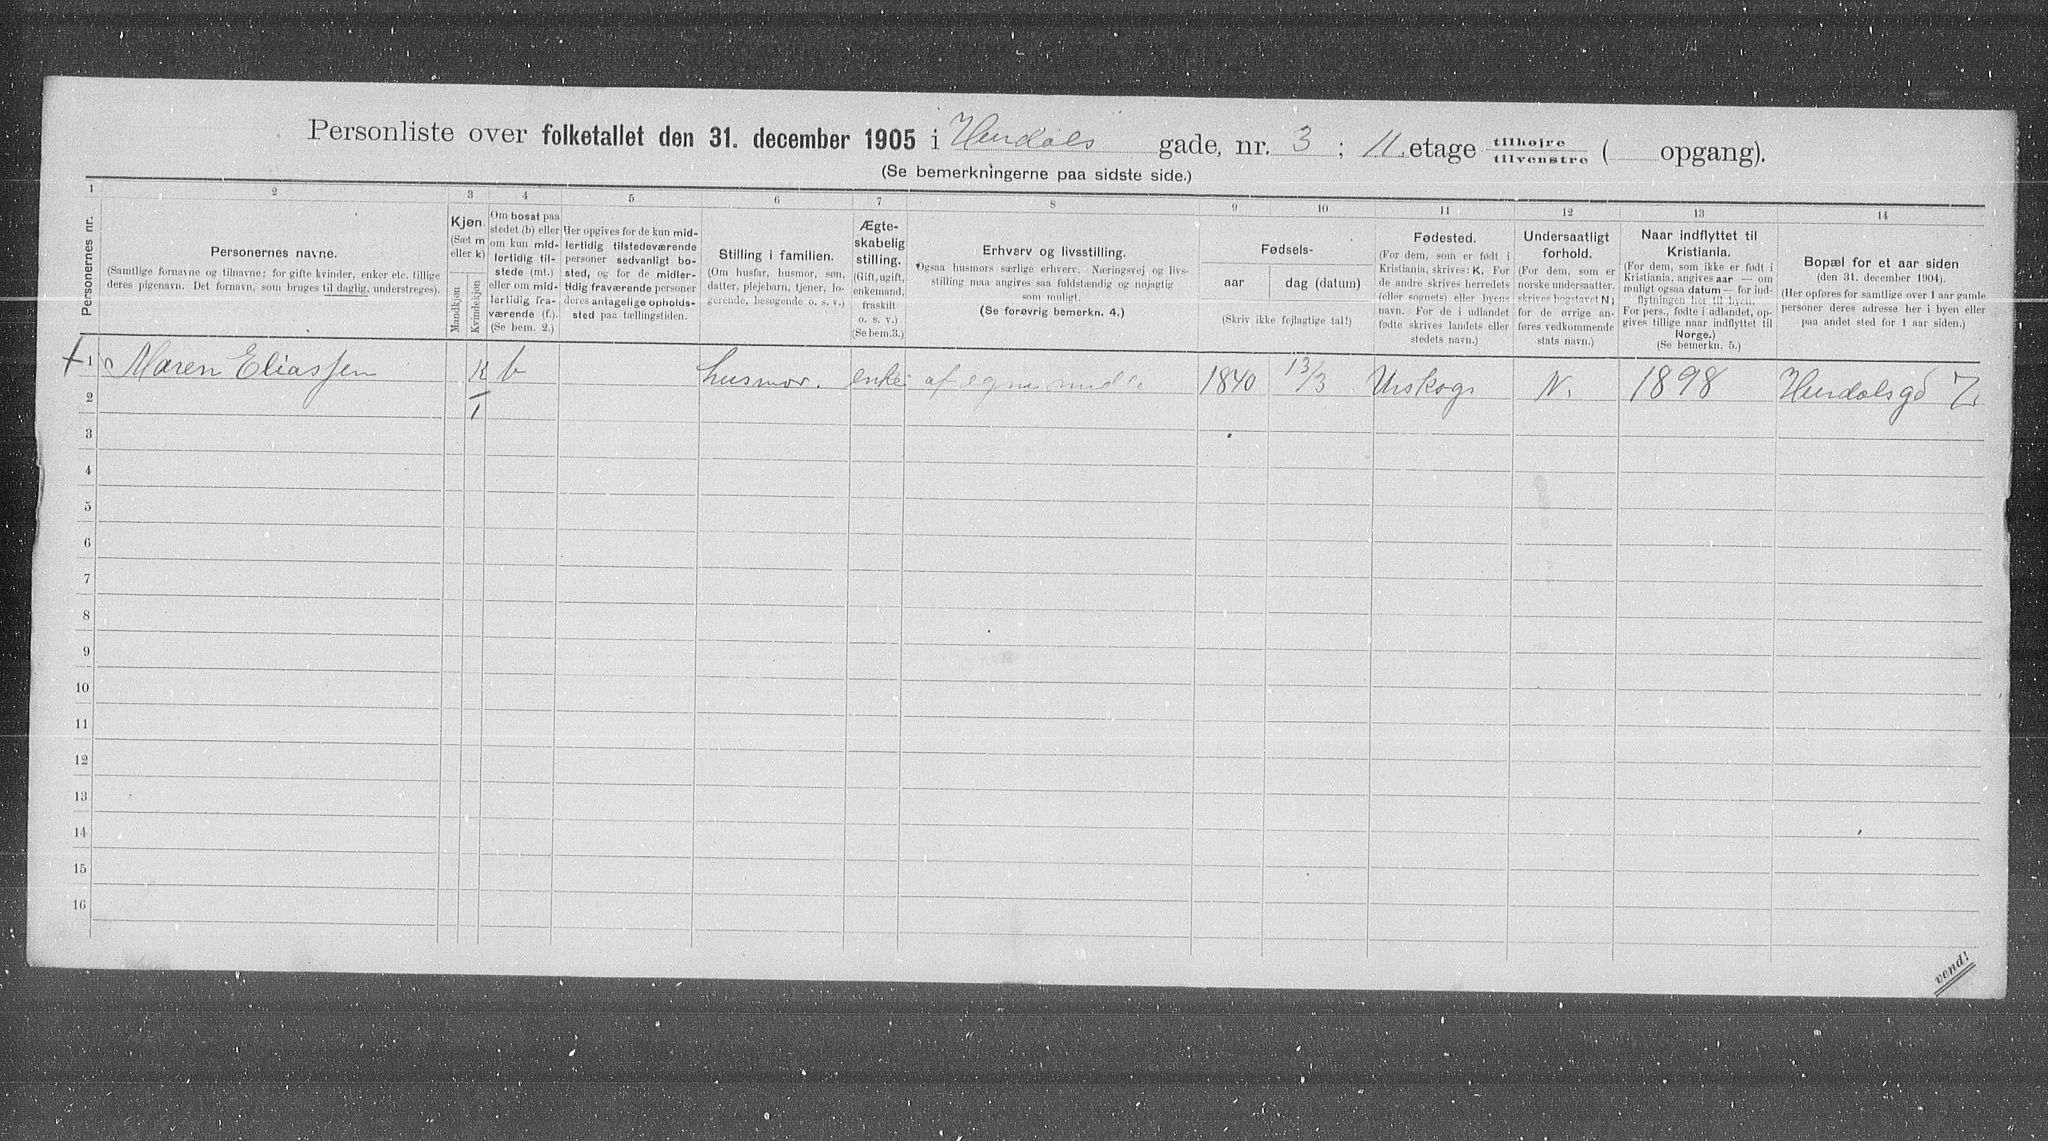 Personliste over folketallet den 31. december 1905 i Herdals gade, nr. 3 ; 11. etage tilhøjre tilvenstre ( opgang).
(Se bemerkningerne paa sidste side.)
1 2 3 4 5 6 7 8 9 10 11 12 13 14
Personernes nr.
Personernes navne.
(Samtlige fornavne og tilnavne; for gifte kvinder, enker etc. tillige
deres pigenavn. Det fornavn, som bruges til daglig, understreges).
Kjøn.
(Sæt m
eller k)
Mandkjøn
Kvindekjøn
Om bosat paa
stedet (b) eller
om kun mid-
lertidig til-
stede (mt.)
eller om mid-
lertidig fra-
værende (f.).
(Se bem. 2.)
Her opgives for de kun mid-
lertidig tilstedeværende
personer sedvanligt bo-
sted, og for de midler-
tidig fraværende personer
deres antagelige opholds-
sted paa tællingstiden.
Stilling i familien.
(Om husfar, husmor, søn,
datter, plejebarn, tjener, lo-
gerende, besøgende o. s. v.)
Ægte-
skabelig
stilling.
(Gift, ugift,
enkemand,
fraskilt
o. s. v.)
(Se bem.3.)
Erhverv og livsstilling.
Ogsaa husmors særlige erhverv. Næringsvej og livs-
stilling maa angives saa fuldstændig og nøjagtig
som muligt.
(Se forøvrig bemerkn. 4.)
Fødsels-
aar
dag (datum)
(Skriv ikke fejlagtige tal!)
Fødested.
(For dem, som er født i
Kristiania, skrives: K. For
de andre skrives herredets
(eller sognets) eller byens
navn. For de i udlandet
fødte skrives landets eller
stedets navn.)
Undersaatligt
forhold.
(For dem, som er
norske undersaatter,
skrives bogstavet N;
for de øvrige an-
føres vedkommende
stats navn.)
Naar indflyttet til
Kristiania.
(For dem, som ikke er født i
Kristiania, angives aar — om
muligt ogsaa datum — for ind-
flytningen her til byen.
For pers., fødte i udlandet, op-
gives tillige naar indflyttet til
Norge.)
(Se bemerkn. 5.)
Bopæl for et aar siden
(den 31. december 1904).
(Her opføres for samtlige over 1 aar gamle
personer deres adresse her i byen eller
paa andet sted for 1 aar siden.)
1 Maren Eliassen K b husmor. enke af egne midler 1840 13/3 Urskog N. 1898 Herdalsgd 7.
2 1
3
4
5
6
7
8
9
10
11
12
13
14
15
16
vend!